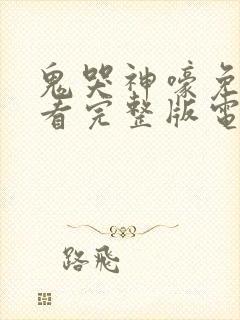 鬼哭神嚎免
看完整版電
路飛